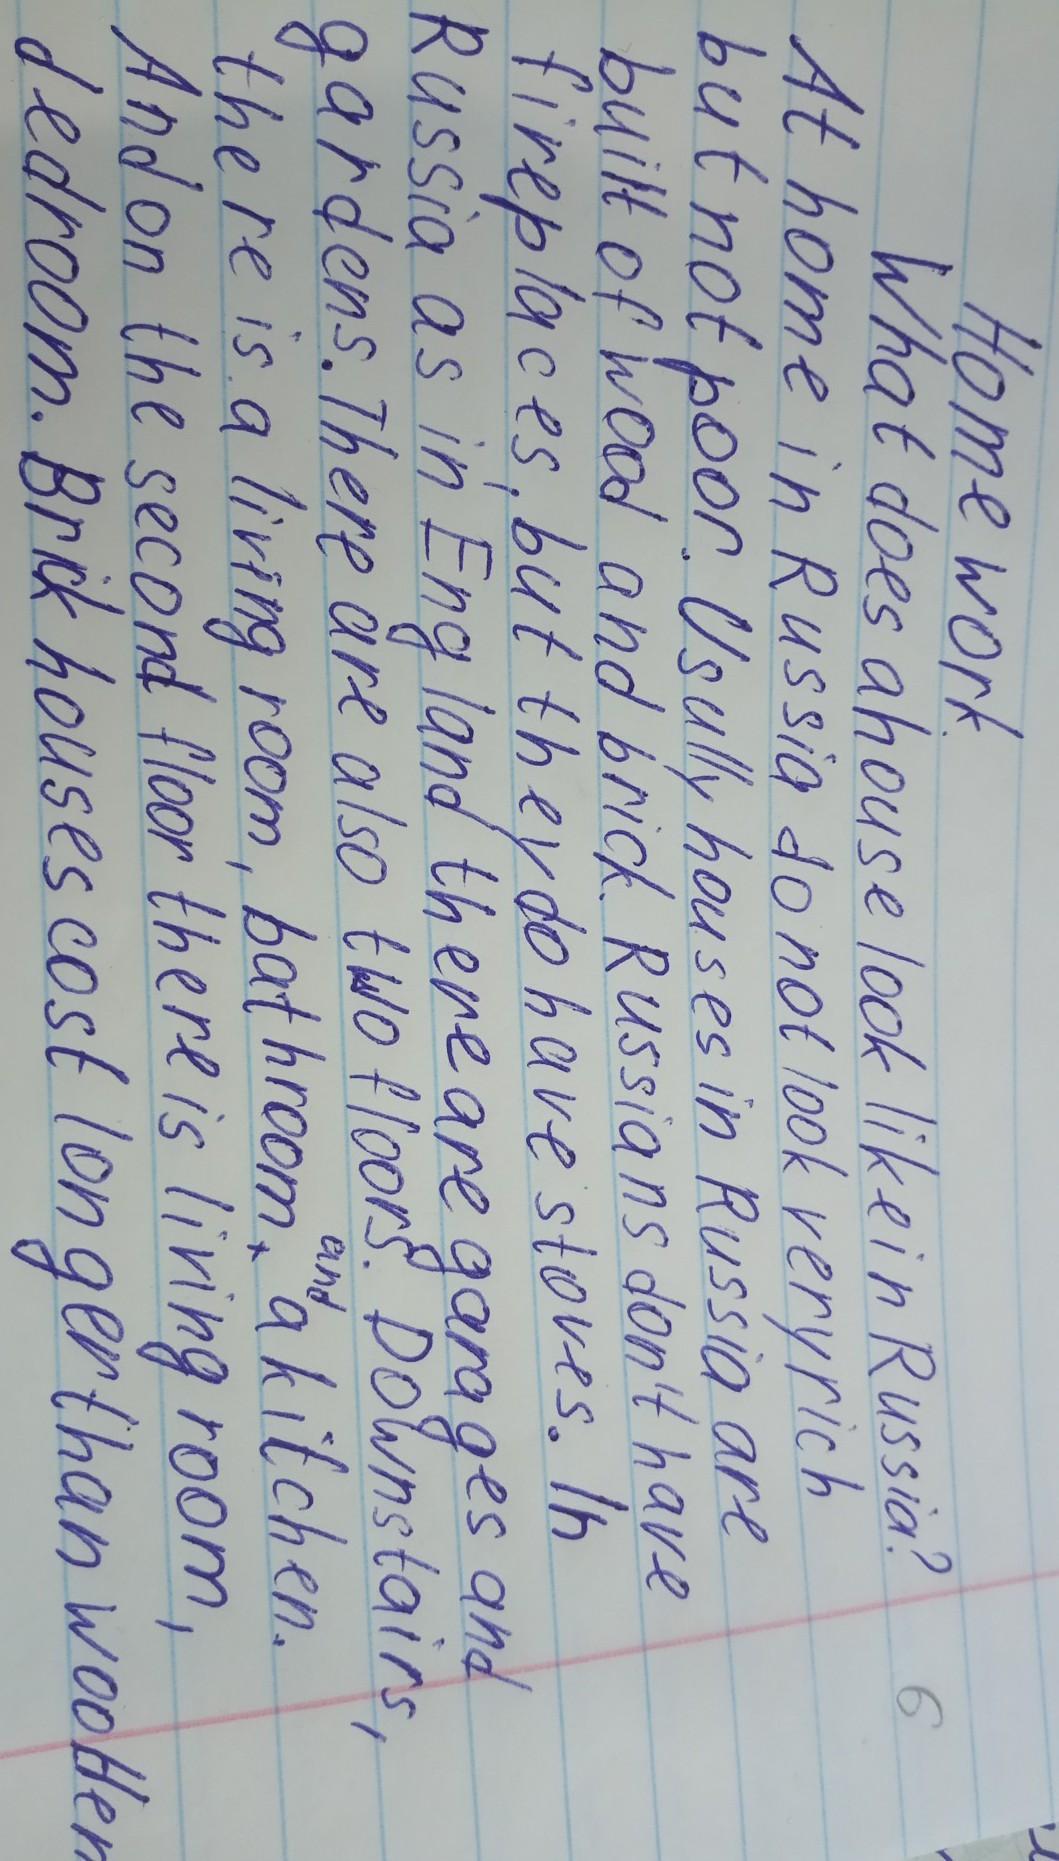 Home work.
What does a house look like in Russia?
6
At home in Russia do not look very rich
but not poor. Usully houses in Russia are
built of wood and brick. Russians don't have
fireplaces, but they do have stoves. In
Russia as in England there are garages and
gardens. There are also two floors. Downstairs,
there is a living room, bathroom and a kitchen.
And on the second floor there is living room,
dedroom. Brick houses cost longer than wooden